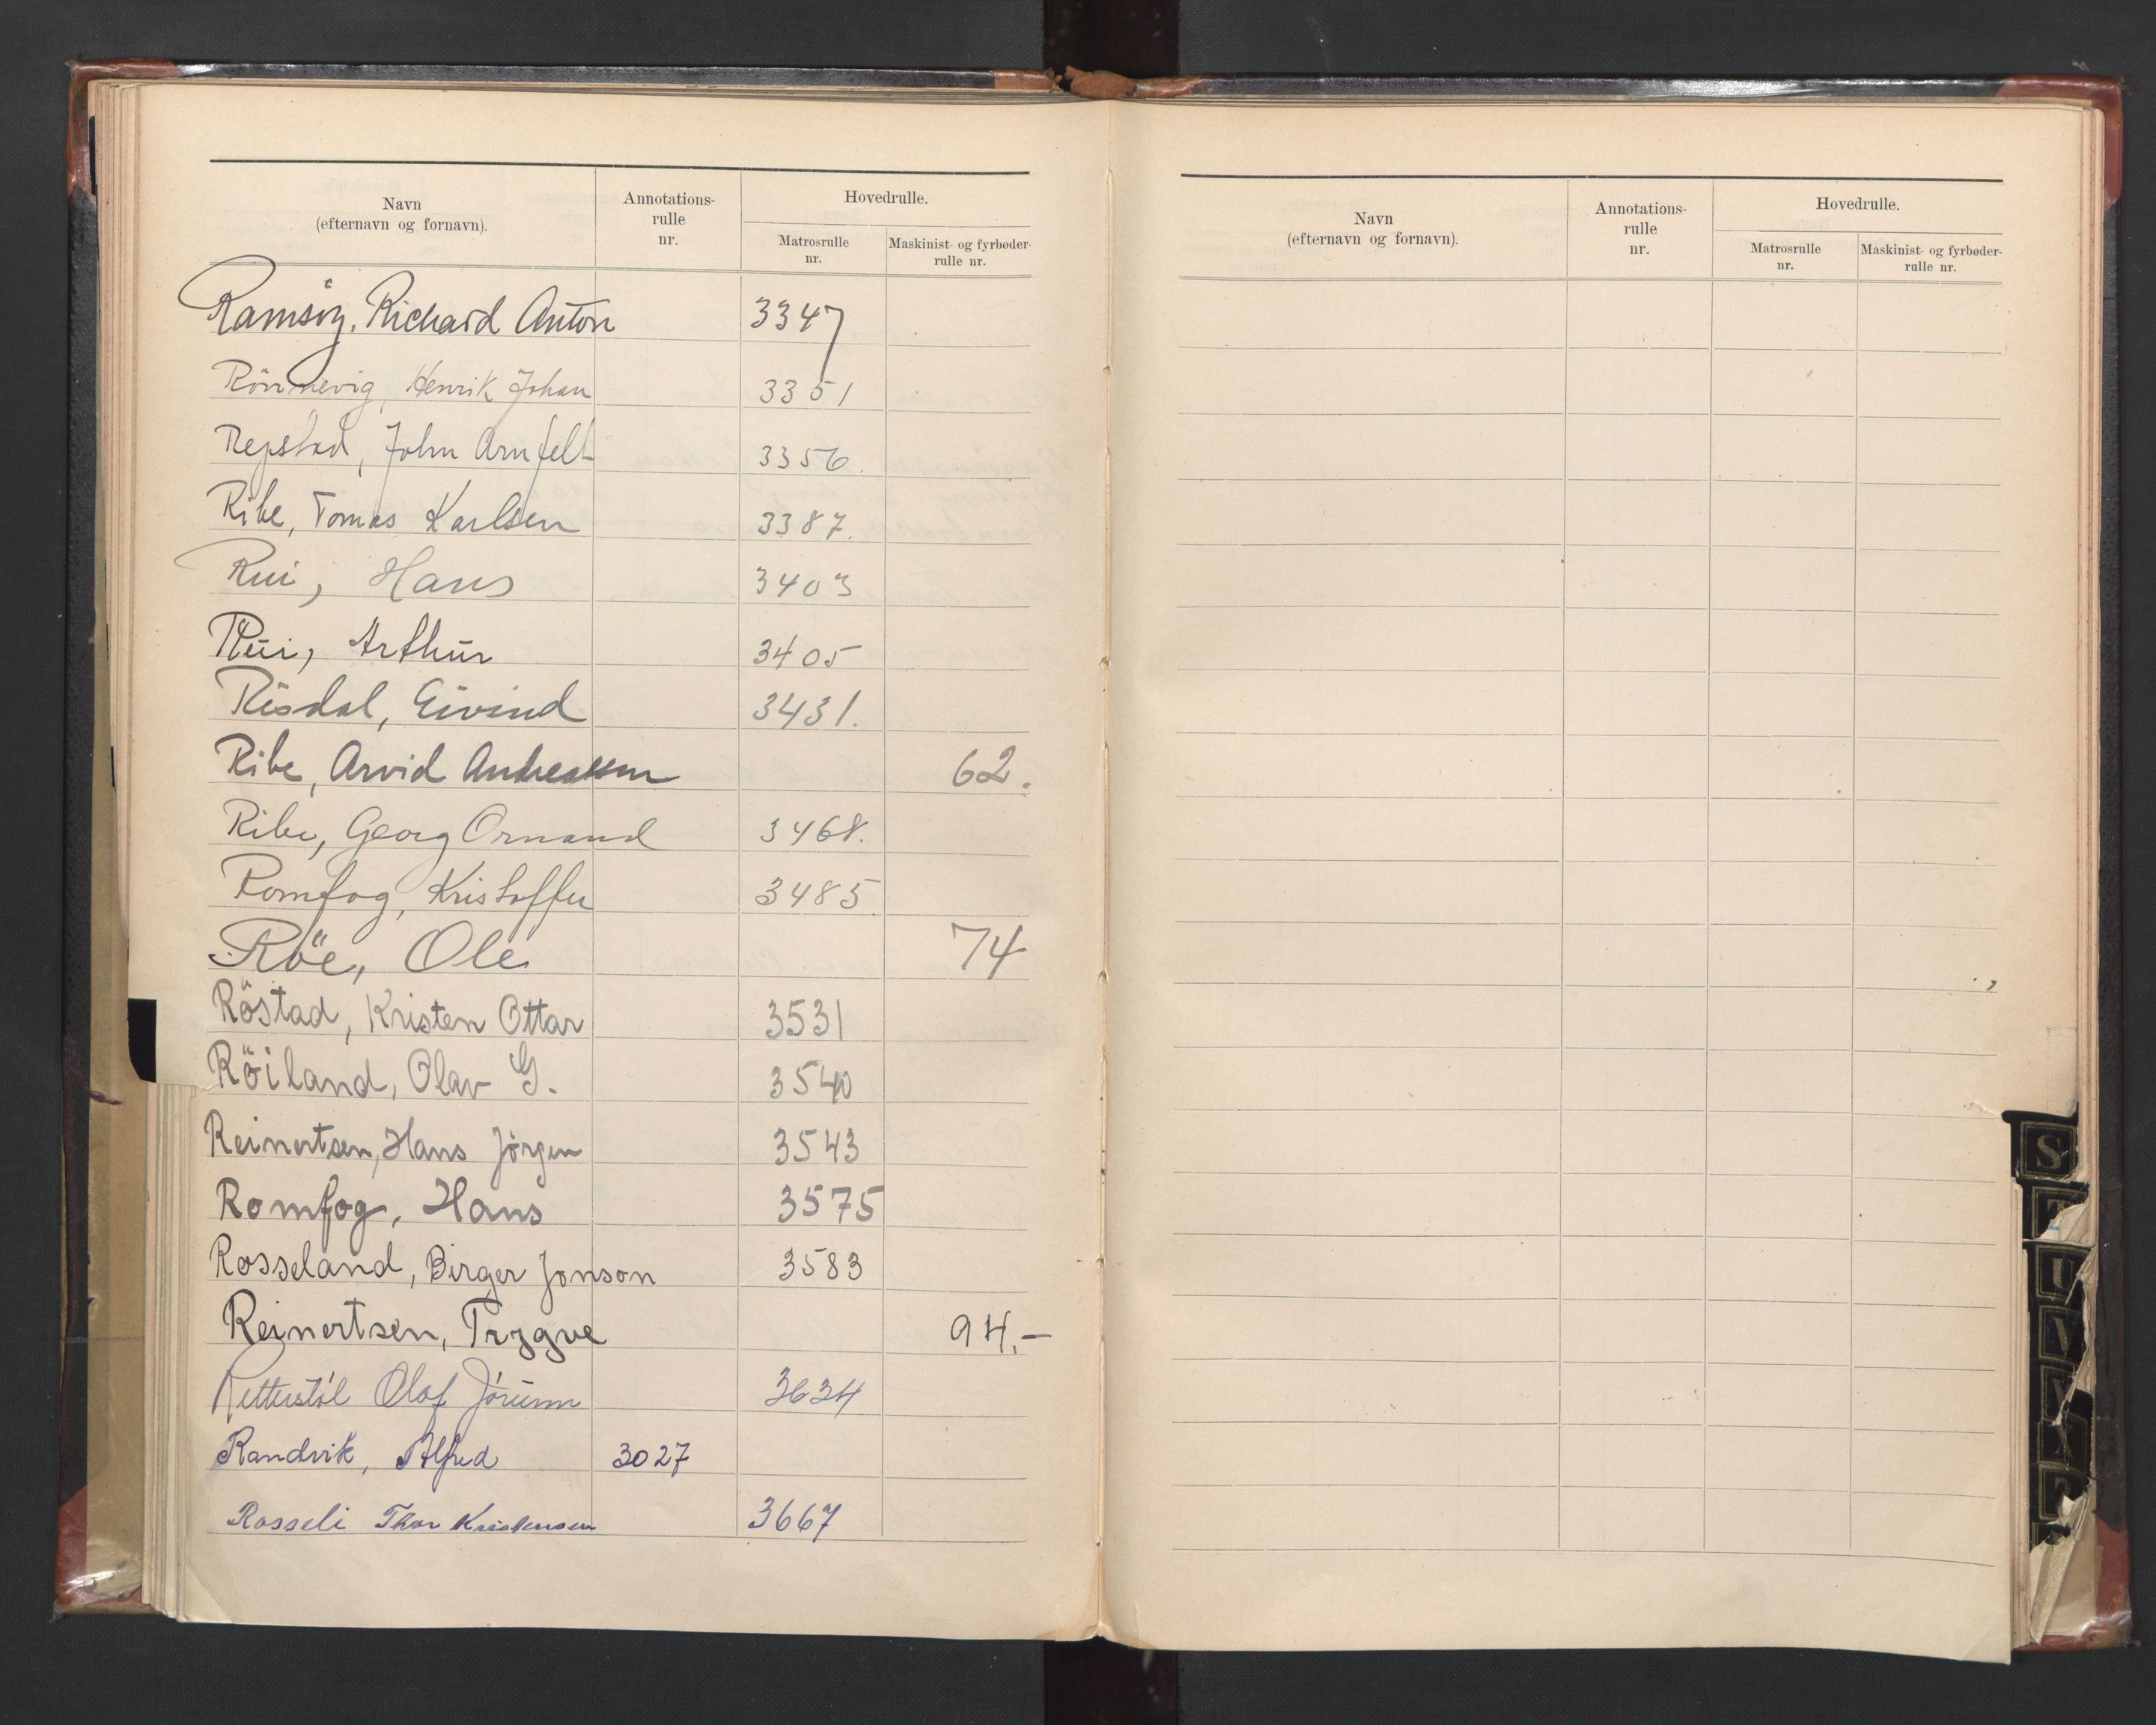 Navn (efternavn og fornavn). Annotations-rulle nr. Hovedrulle. Matrosrulle nr. Maskinist- og fyrbøder-rulle nr.
Ramsöy, Richard Anton 3347
Rönnevig, Henrik Johan 3351
Repstad, John Arnfelt 3356.
Ribe, Tomas Karlsen 3387.
Rui, Hans 3403
Rui, Arthur 3405
Risdal, Eivind 3431.
Ribe, Arvid Andreassen 62.
Ribe, Georg Ornand 3468.
Romfog, Kristoffer 3485.
Röe, Ole 74
Röstad, Kristen Ottar 3531
Röiland, Olav G. 3540
Reinertsen, Hans Jörgen 3543
Romfog, Hans 3575
Rosseland, Birger Jonson 3583
Reinertsen, Trygve 94.-
Retterstöl Olaf Jörunn 3634
Randvik, Alfred 3027
Rosseli Thor Kristensen 3667
Navn (efternavn og fornavn). Annotations-rulle nr. Hovedrulle. Matrosrulle nr. Maskinist- og fyrbøder-rulle nr.
S
T
U
V